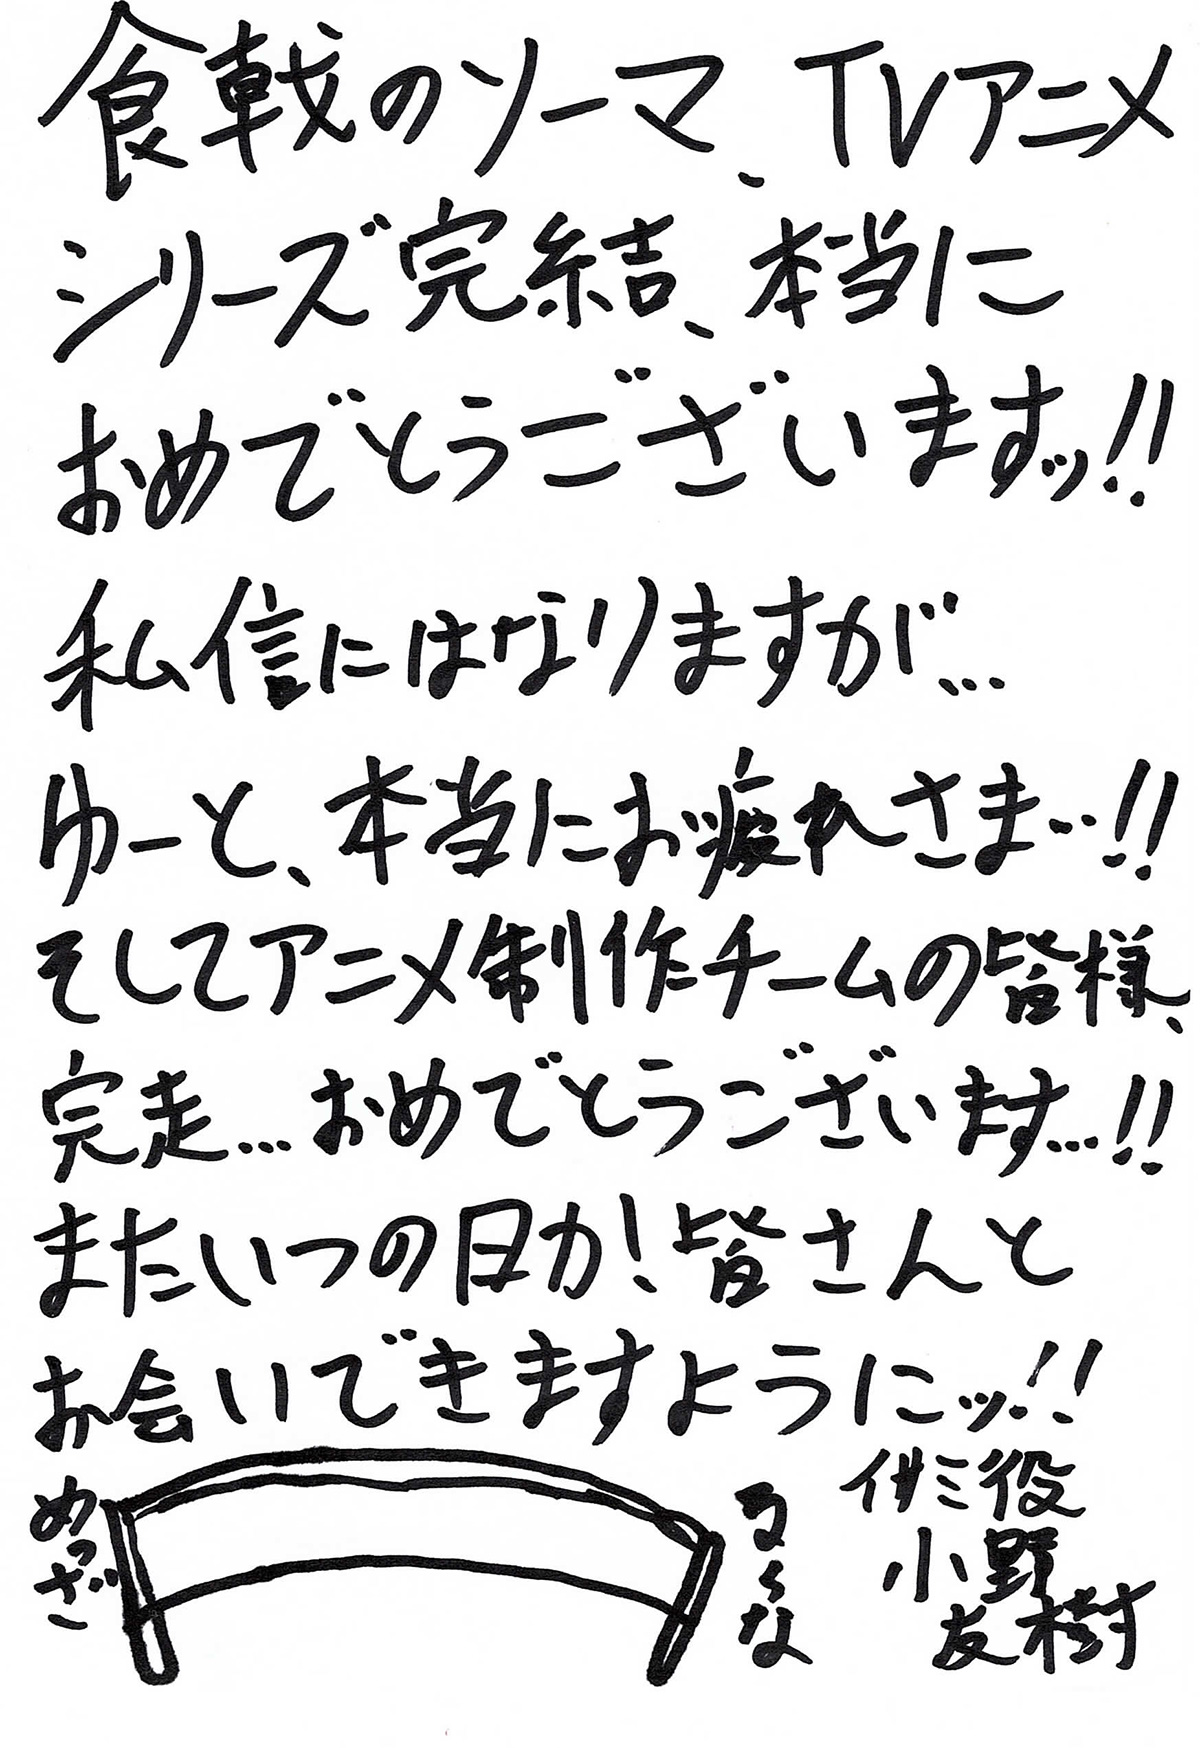 食戟のソーマ、TVアニメ
シリーズ完結、本当に
おめでとうございますッ!!
私信にはなりますが…
ゆーと、本当にお疲れさま…!!
そしてアニメ制作チームの皆様、
完走…おめでとうございます…!!
またいつの日か!皆さんと
お会いできますようにッ!!
めっざ
るぅな
併三役
小野
友樹